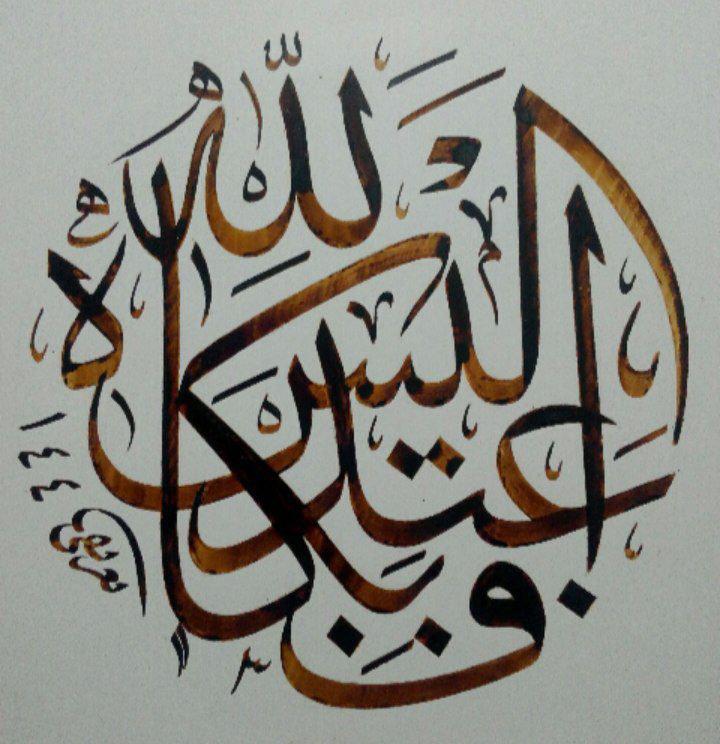 أَلَيْسَ اللَّهُ بِكَافٍ عَبْدَهُ
١٤٤